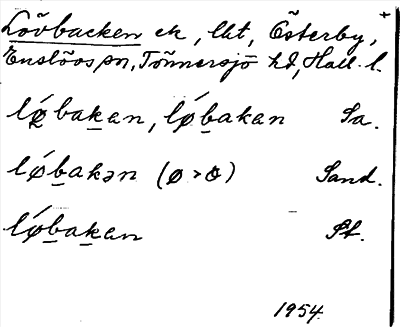 Lövbacken ek, lht, Österby, +
Enslövs sn, Tönnersjö hd, Hall. l.
lǿbakan, lǿbakan Sa.
lǿbakən (ø > o) Sand.
lǿbakan St.
1954.